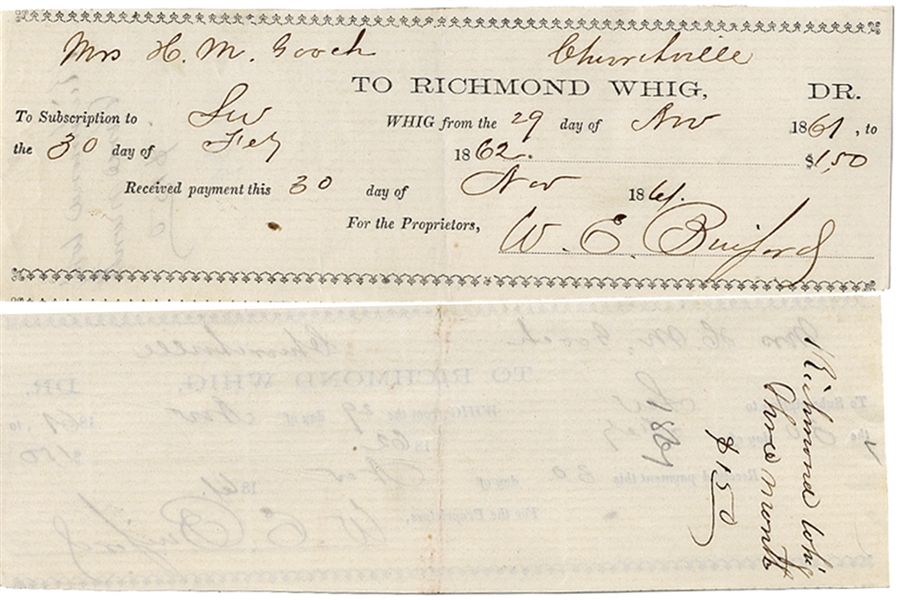 Mrs H. M. Gooch Churchville
TO RICHMOND WHIG, DR.
To Subscription to Sw WHIG from the 29 day of Nov 1861, to
the 30 day of Feby 1862. $1,50
Received payment this 30 day of Nov 1861.
For the Proprietors, W. E. Buiford
Richmond Whig
Three Month
$1.50
1861